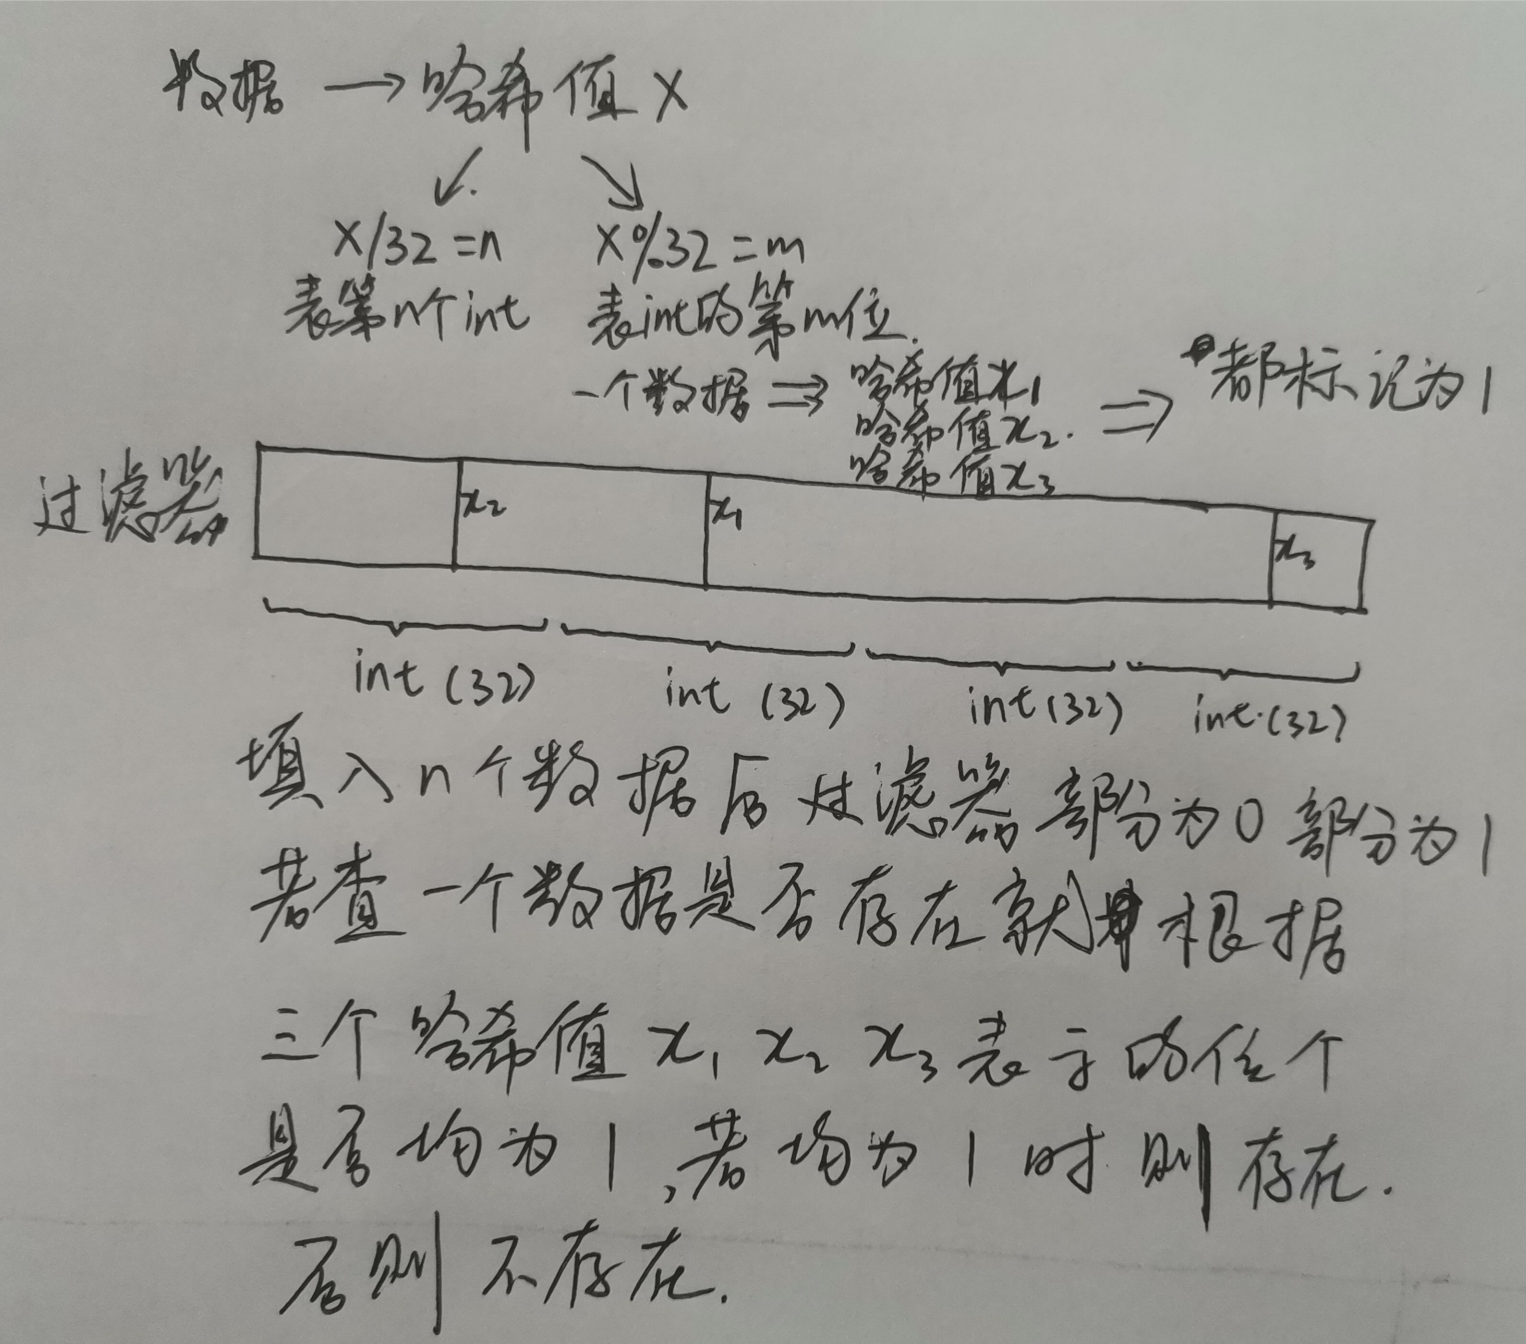 数据 → 哈希值 X
X/32=n X%32=m
表第n个int 表int的第m位.
一个数据 ⇒ 哈希值x1 ⇒ 都标记为1
哈希值x2.
哈希值x3
过滤器 x2 x1 x3
int (32) int (32) int (32) int.(32)
填入n个数据后过滤器部分为0部分为1
若查一个数据是否存在就根据
三个哈希值 x1 x2 x3 表示的位个
是否均为1,若均为1时则存在.
否则不存在.